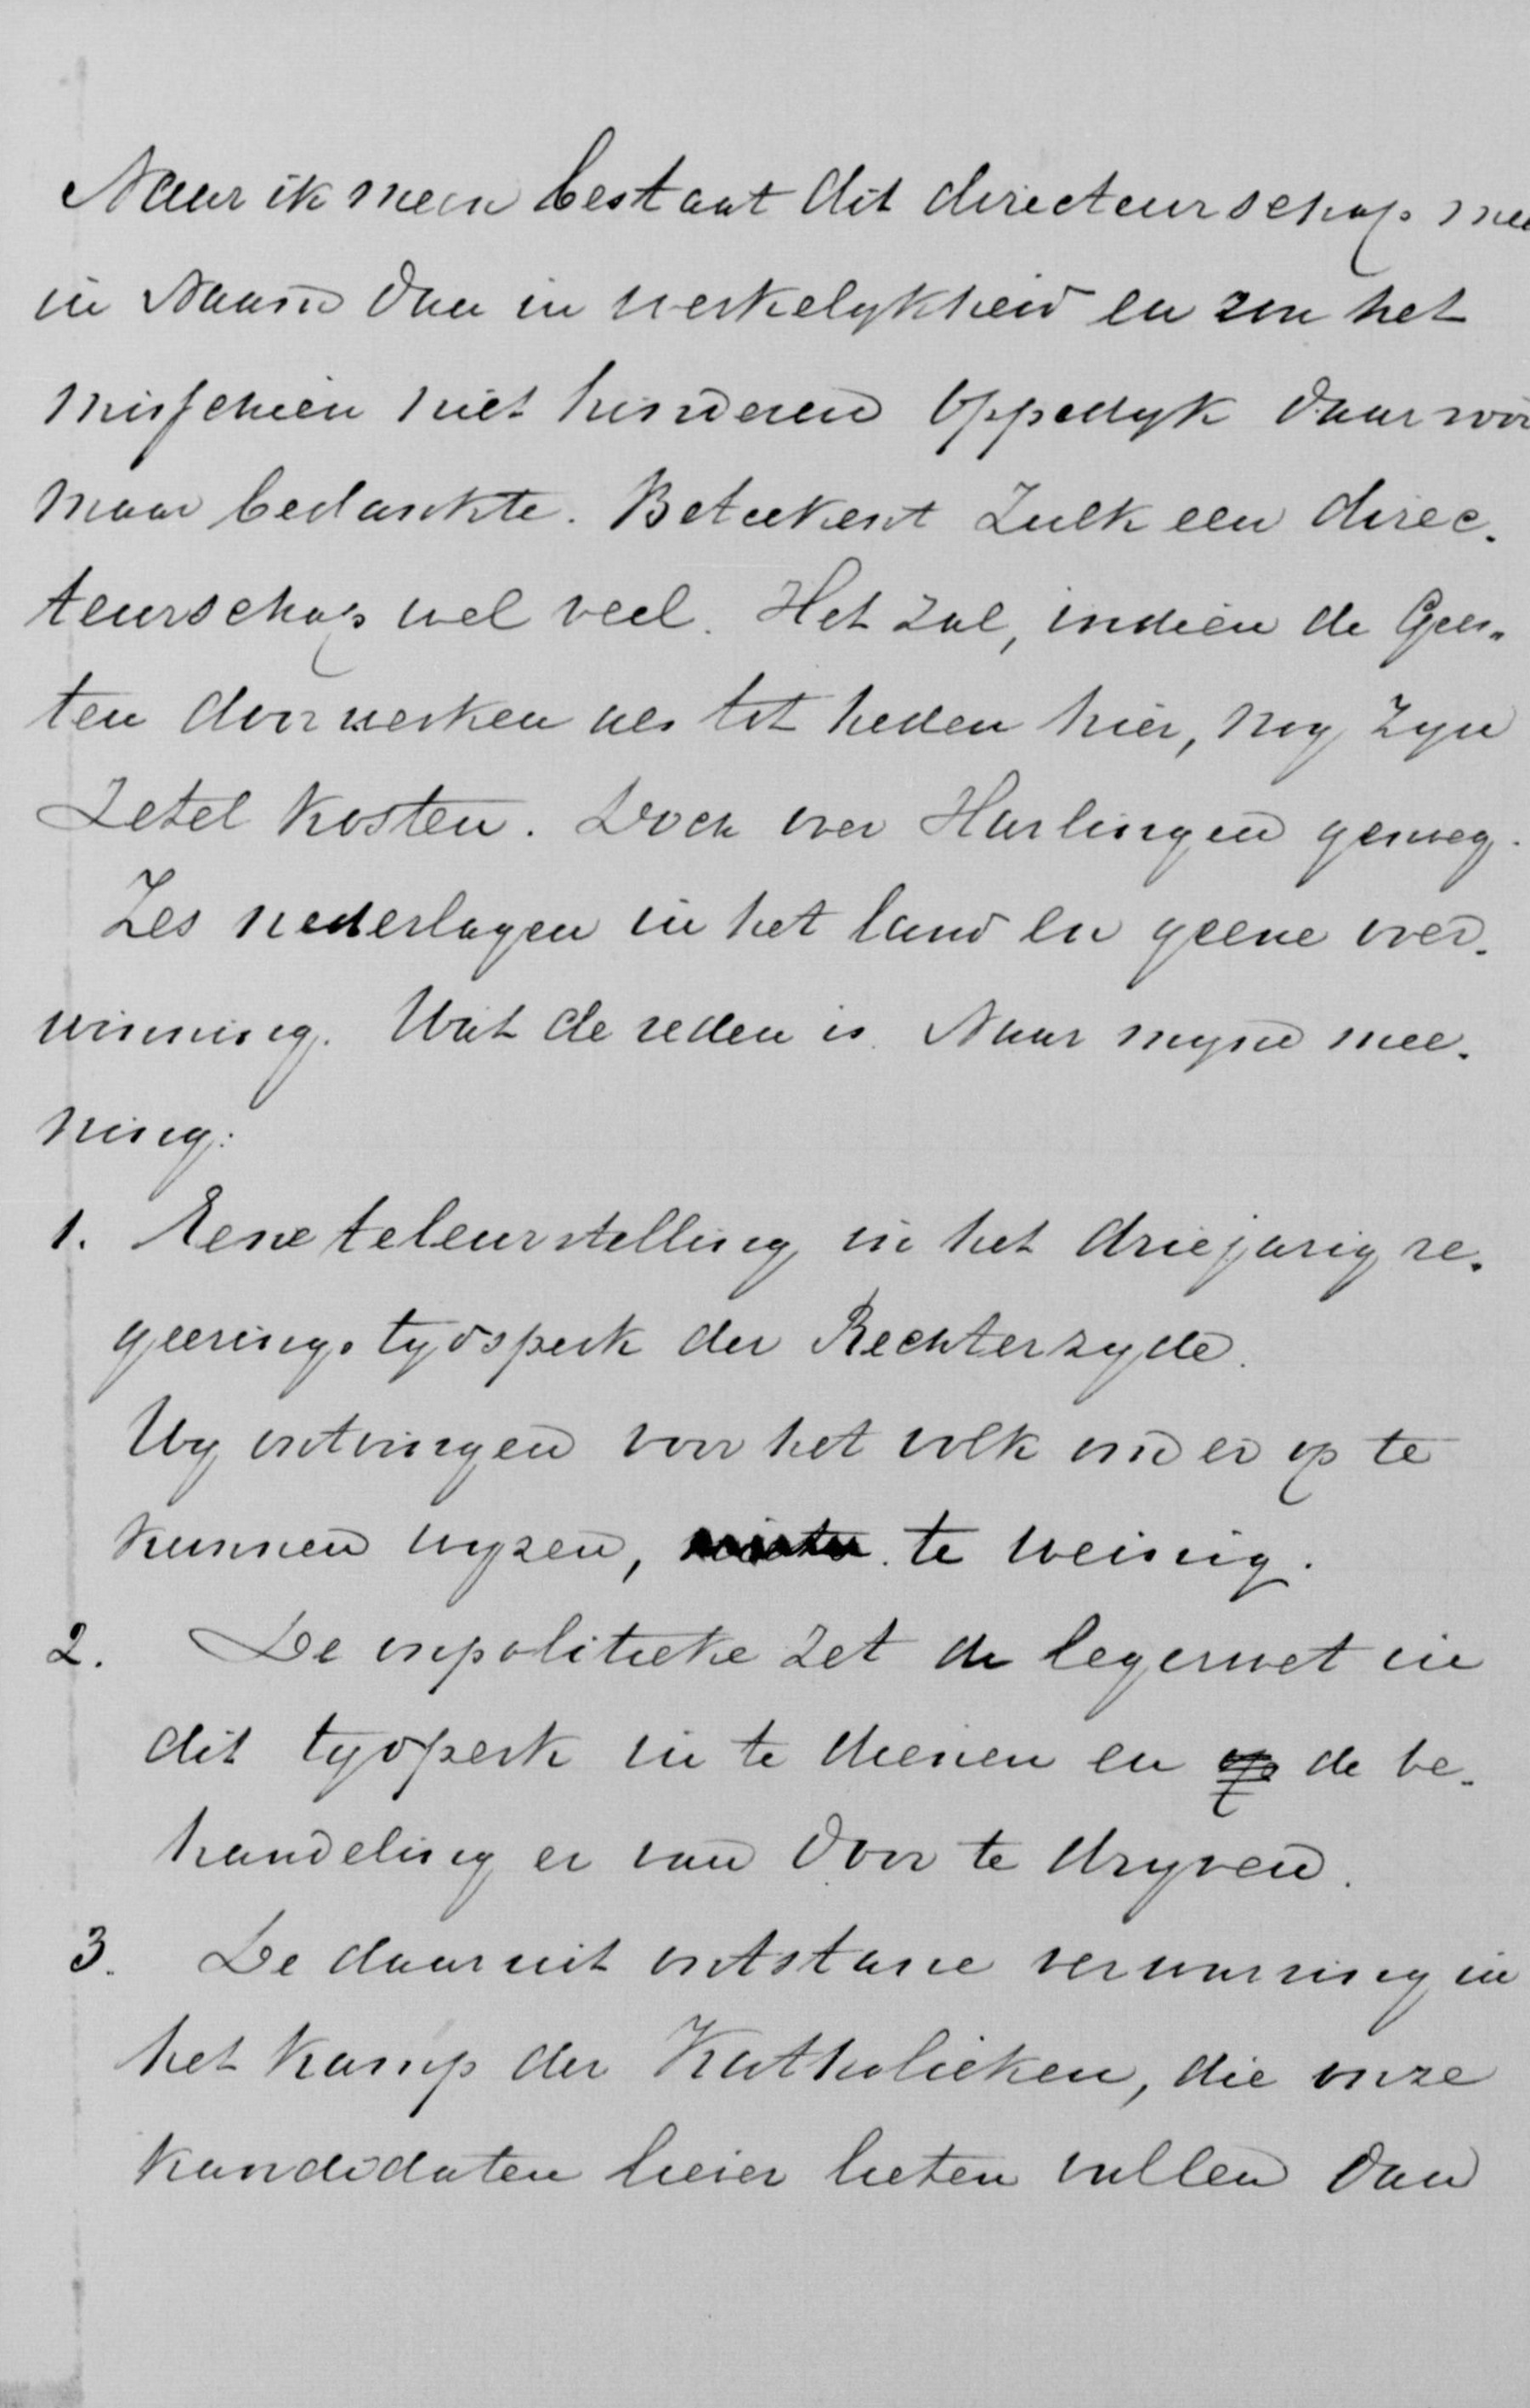 Naar ik meen bestaat dit directeurschap mee
in Naam dan in werkelykheid en zou het
misschien niet hinderen Oppedyk daar voor
maar bedankte. Beteekent zulk een direc-
teurschap wel veel. Het zal, indien de Gees-
ten doorwerken als tot heden hier, nog zyn
Zetel kosten. Doch over Harlingen genoeg.
Zes nederlagen in het land en geene over-
winning. Wat de reden is. Naar myne mee-
ning:
1. Eene teleurstelling in het driejarig re-
geerings tydsperk der Rechterzyde.
Wy ontvingen voor het volk om er op te
kunnen wyzen, te weinig.
2. De onpolitieke zet de legerwet in
dit tydperk in te dienen en op de be-
handeling er van door te dryven.
3. De daaruit ontstane verwarring in
het kamp der Katholieken, die onze
kandidaten liever lieten vallen dan